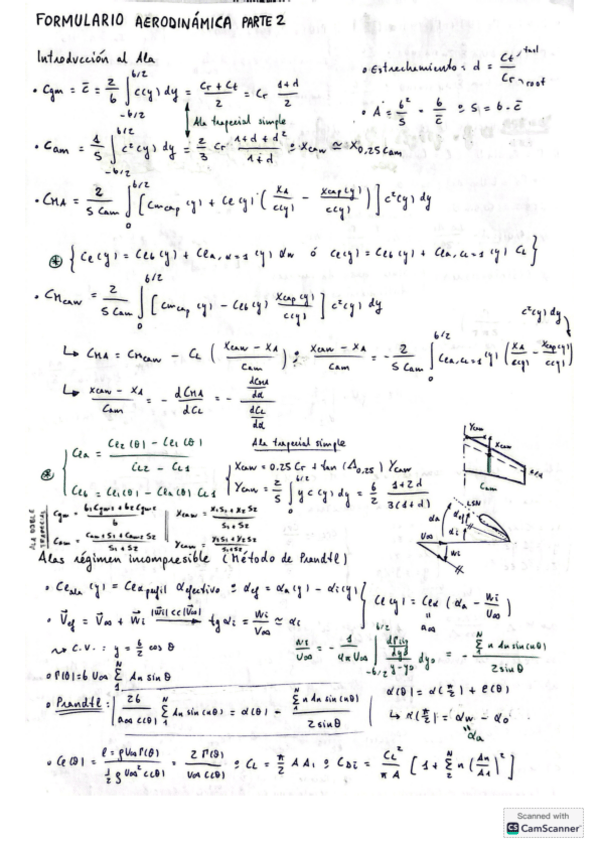 FORMULARIO AERODINÁMICA PARTE 2
Introducción al Ala
• Estrechamiento: d = Ct / Cr
• Cgm = c̄ = 2/b ∫_{-b/2}^{b/2} c(y) dy = (Cr + Ct)/2 = Cr (1+d)/2
Ala trapecial simple
• A = b²/S = b/c̄ : S = b·c̄
• Cam = 1/S ∫_{-b/2}^{b/2} c²(y) dy = 2/3 Cr (1+d+d²)/(1+d) : xcaw ≃ x0,25 Cam
• CMA = 2/(S Cam) ∫_0^{b/2} [Cmcap (y) + Cl (y) (xA/c(y) − xcap(y)/c(y))] c²(y) dy
⊛ { Cl(y) = Clb(y) + Cla,α=1 (y) αw ó Cl(y) = Clb(y) + Cla,CL=1 (y) CL }
• CMcaw = 2/(S Cam) ∫_0^{b/2} [Cmcap (y) − Clb(y) xcap(y)/c(y)] c²(y) dy
c²(y) dy
↳ CMA = CMcaw − CL ((xcaw − xA)/Cam) : (xcaw − xA)/Cam = − 2/(S Cam) ∫_0^{b/2} Cla,CL=1 (y) (xA/c(y) − xcap(y)/c(y))
↳ (xcaw − xA)/Cam = − dCMA/dCL = − (dCMA/dα)/(dCL/dα)
⊛ { Cla = (Cl2(θ) − Cl1(θ))/(CL2 − CL1)
Clb = Cl1(θ) − Cla(θ) CL1
Ala trapecial simple
xcaw = 0.25 Cr + tan (Λ0,25) Ycaw
Ycaw = 2/S ∫_0^{b/2} y c(y) dy = b/2 (1+2d)/(3(1+d))
Ycaw
xcaw
Cam
ALA DOBLE TRAPECIAL
Cgm = (b1 Cgm1 + b2 Cgm2)/b
Cam = (Cam1 S1 + Cam2 S2)/(S1 + S2)
xcaw = (x1 S1 + x2 S2)/(S1 + S2)
Ycaw = (y1 S1 + y2 S2)/(S1 + S2)
LSN
αa
αef
αi
U∞
Wi
Alas régimen incompresible (Método de Prandtl)
• Clala (y) = Clα perfil αefectivo : αef = αa(y) − αi(y) } Cl(y) = Clα (αa − Wi/U∞)
a∞
• V⃗ef = V⃗∞ + W⃗i |W⃗i| << |V⃗∞| → tg αi = Wi/V∞ ≃ αi
↝ C.V.: y = b/2 cos θ
Wi/U∞ = − 1/(4π U∞) ∫_{-b/2}^{b/2} (dΓ(y)/dy)/(y − y0) dy0 = − Σ_1^N n An sin(nθ) / (2 sin θ)
• Γ(θ) = b U∞ Σ_1^N An sin θ
• Prandtl: | 2b/(a∞ c(θ)) Σ_1^N An sin(nθ) = α(θ) − Σ_1^N n An sin(nθ) / (2 sin θ) |
α(θ) = α(π/2) + ε(θ)
↳ α(π/2) = αw − α0
αa
• Cl(θ) = ℓ = ρ U∞ Γ(θ) / (1/2 ρ U∞² c(θ)) = 2 Γ(θ) / (U∞ c(θ)) : CL = π/2 A A1 : CDi = CL²/(π A) [1 + Σ_2^N n (An/A1)²]
Scanned with
CS CamScanner